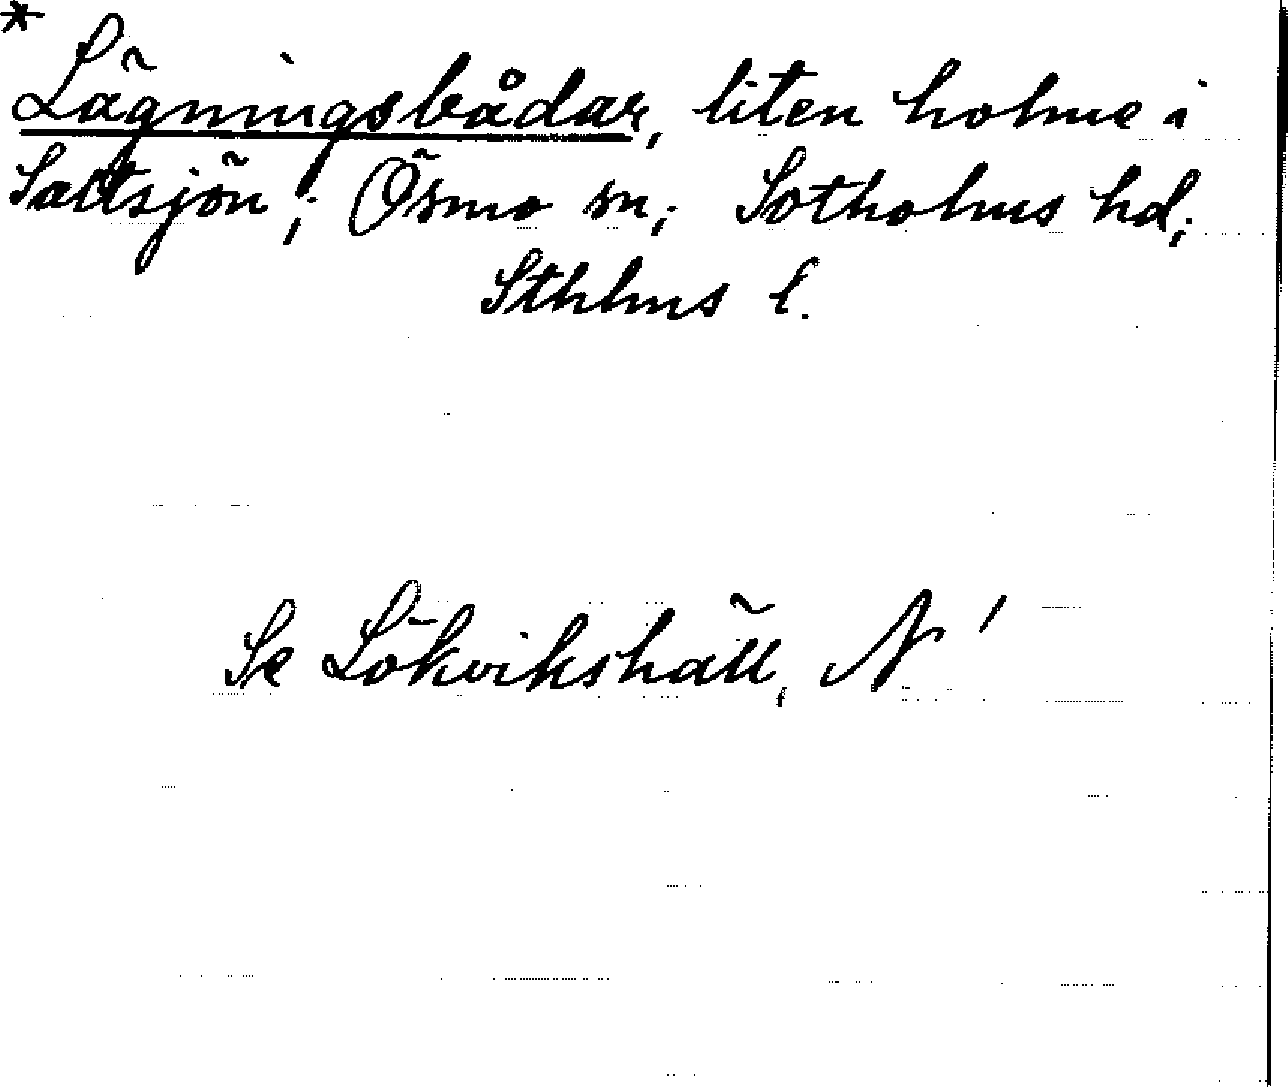 * Lägningsbådar, liten holme i
Saltsjön; Ösmo sn; Sotholms hd;
Sthlms l.
Se Lökvikshäll, N!